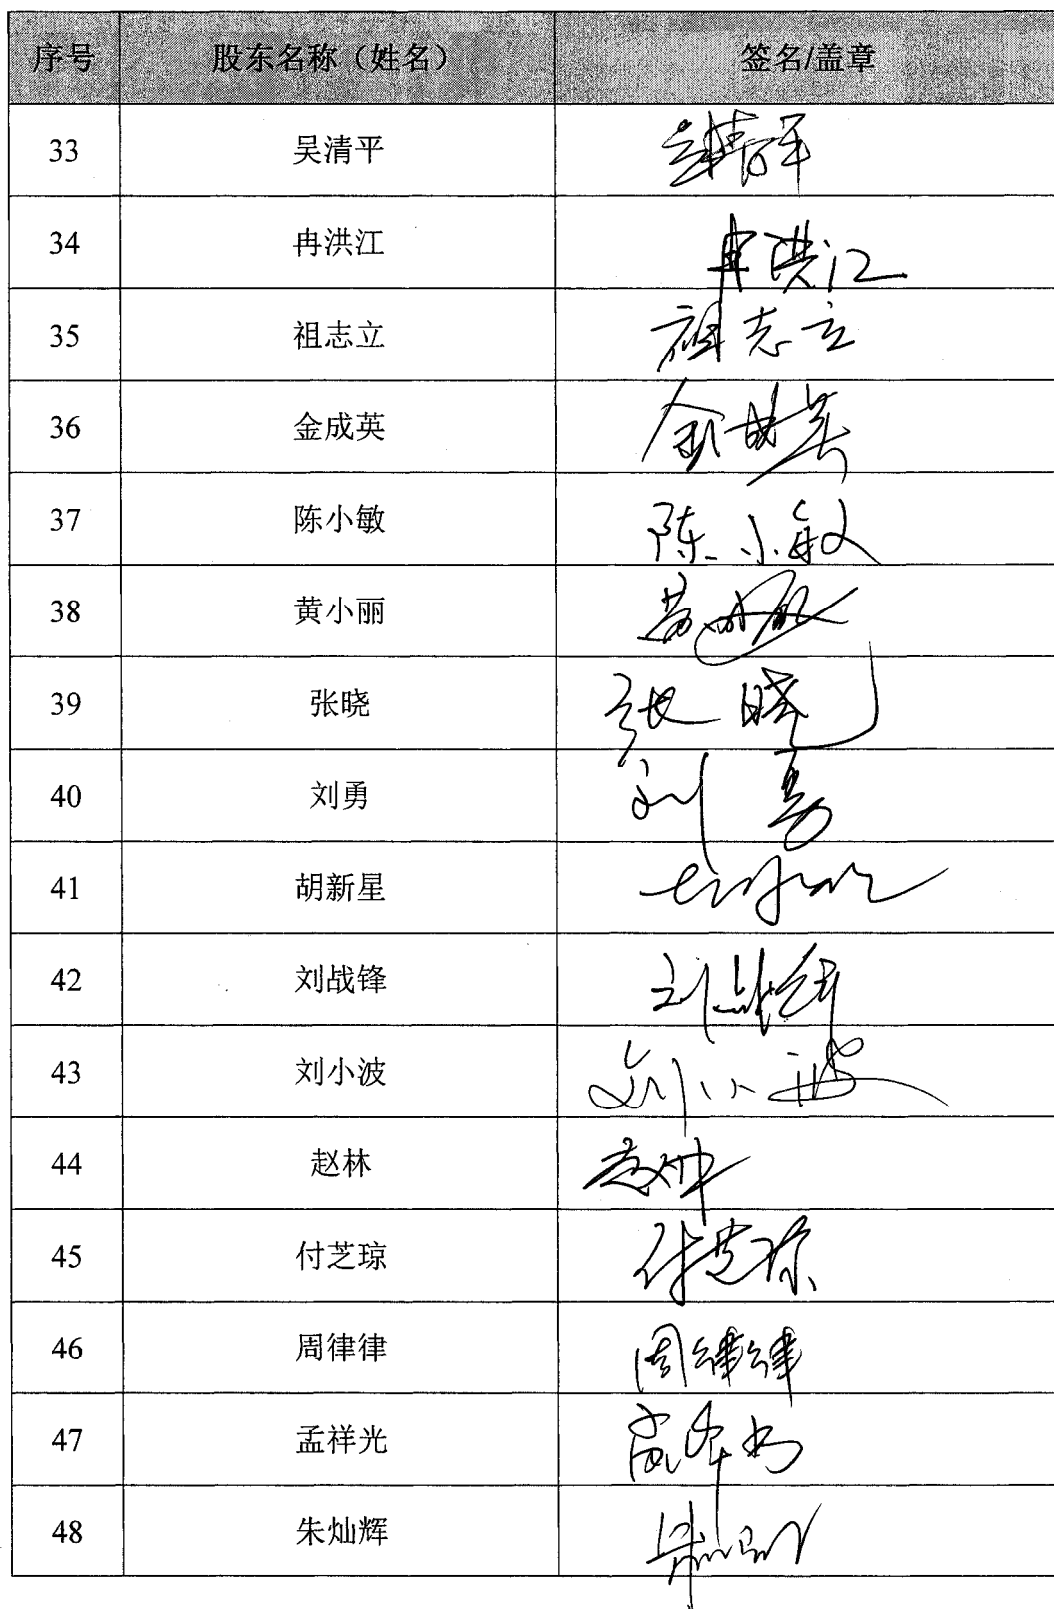 序号 股东名称（姓名） 签名/盖章
33 吴清平 吴清平
34 冉洪江 冉洪江
35 祖志立 祖志立
36 金成英 金成英
37 陈小敏 陈小敏
38 黄小丽
39 张晓 张晓
40 刘勇 刘勇
41 胡新星
42 刘战锋 刘战锋
43 刘小波 刘小波
44 赵林 赵林
45 付芝琼 付芝琼
46 周律律 周律律
47 孟祥光
48 朱灿辉